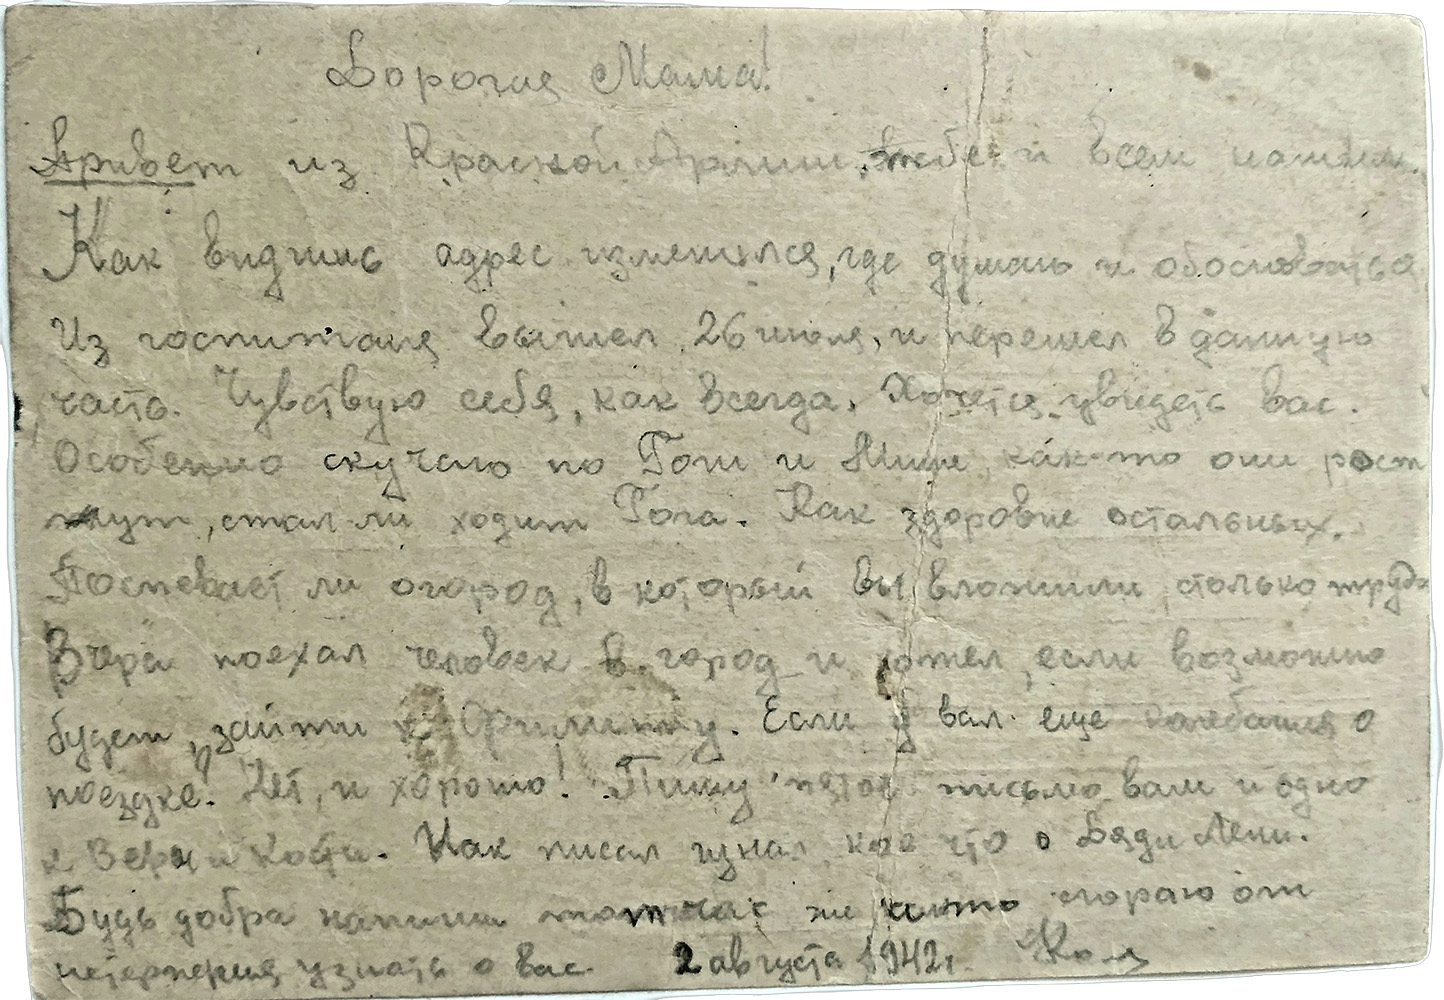 Дорогая Мама!
Привет из Красной Армии, тебе и всем нашим.
Как видишь адрес изменился, где думаю и обосноваться
Из госпиталя вышел 26 июля, и перешел в данную
часть. Чувствую себя, как всегда. Хочется увидеть вас.
Особенно скучаю по Гоги и Мише, как-то они раст
тут, стал-ли ходит Гога. Как здоровие остальных.
Поспевает ли огород, в который вы вложили столько труда
Вчера поехал человек в город и хотел, если возможно
будет, зайти к. Если у вас еще колебания о
поездке? Нет, и хорошо! Пишу пятое письмо вам и одно
к Вере и Кости. Как писал узнал кое что о Дяди Лени.
Будь добра напиши тотчас же сгораю от
нетерпения узнать о вас 2 августа 1942 г. Коля